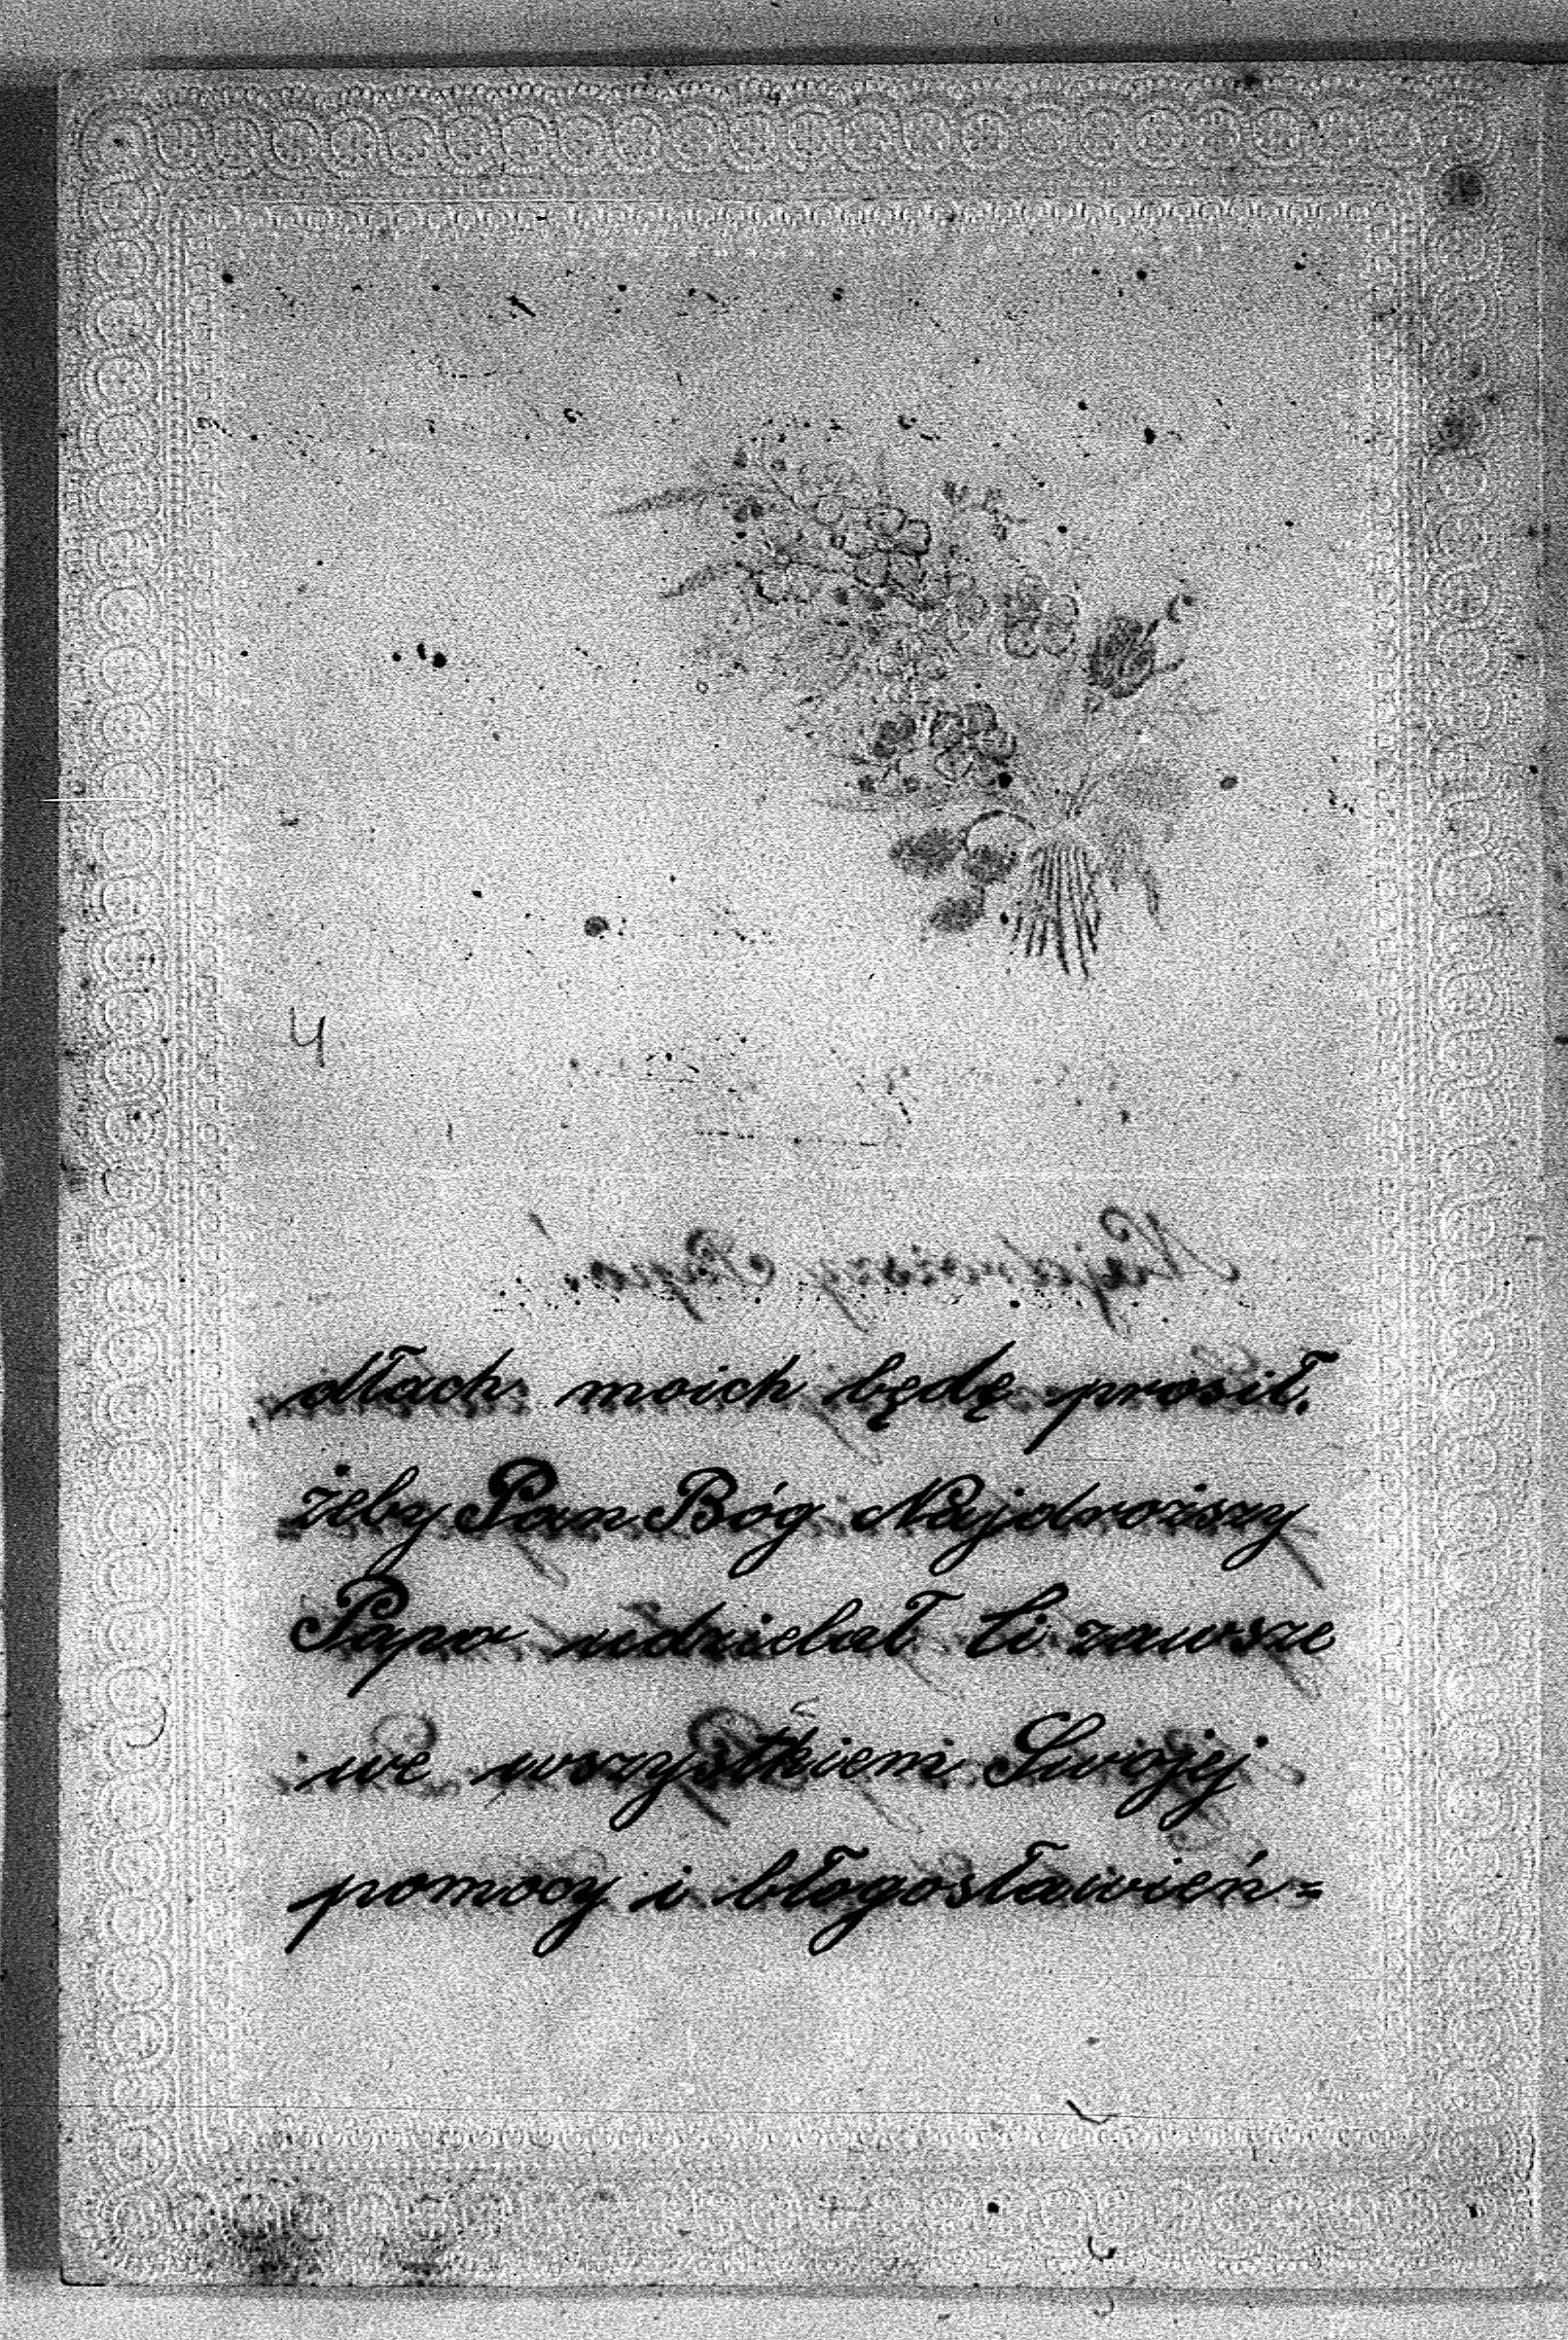 4
Najdroższy Papo!
dłach moich będę prosił,
żeby Pan Bóg Najdroższy
Papo udzielał Ci zawsze
we wszystkiem Swojej
pomocy i błogosławień=